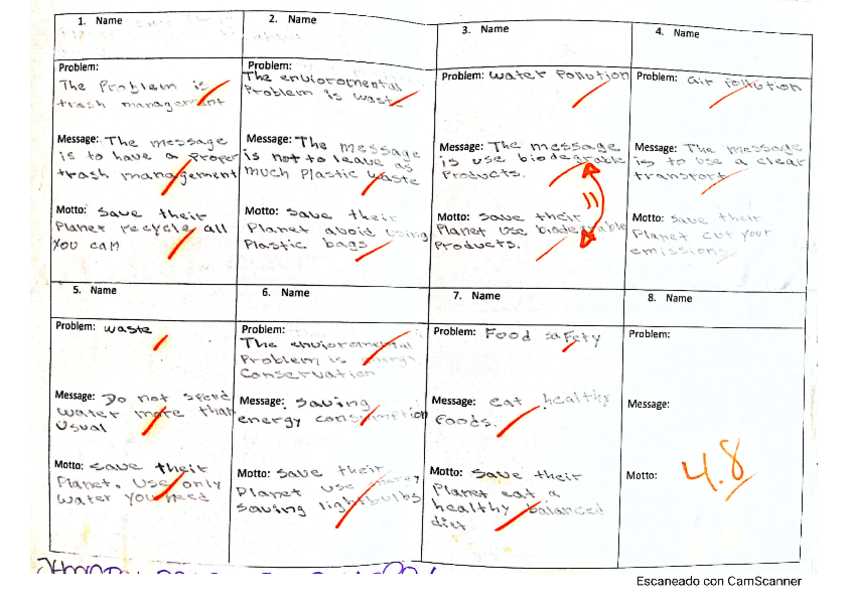 1. Name
Problem:
The Problem is
trash management
Message: The message
is to have a Proper
trash management
Motto: save their
Planet recycle all
You can
2. Name
Problem:
The envioromental
Problem is waste
Message: The message
is not to leave as
much Plastic waste
Motto: save their
Planet aboid using
Plastic bags
3. Name
Problem: water Pollution
Message: The message
is use biodegrable
Products.
Motto: save their
Planet use biodegrable
Products.
4. Name
Problem: air pollution
Message: The message
is to use a clear
transport
Motto: save their
Planet cut your
emissions
5. Name
Problem: waste
Message: Do not spend
water more than
Usual
Motto: save their
Planet. Use only
water you need
6. Name
Problem:
The envioromental
Problem is energy
Conservation
Message: Saving
energy consumption
Motto: save their
Planet use energy
saving lightbulbs
7. Name
Problem: Food safety
Message: eat healthy
foods.
Motto: save their
Planet eat a
healthy balanced
diet
8. Name
Problem:
Message:
Motto:
4.8
Escaneado con CamScanner